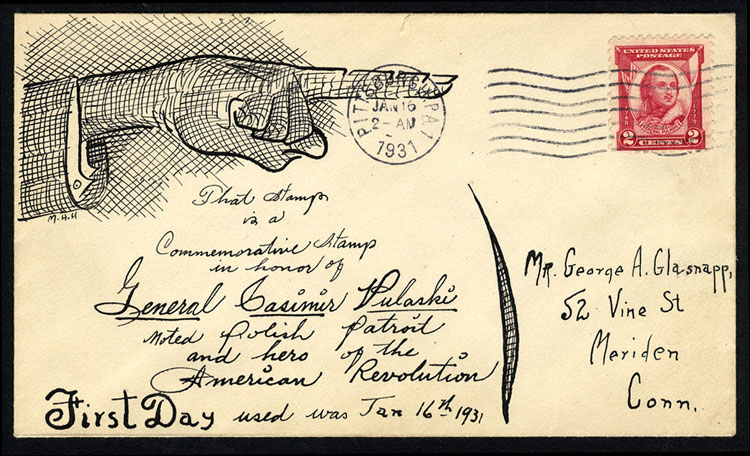 UNITED STATES
POSTAGE
2 CENTS 2
PITTSBURGH
PA 1
JAN 16
2-AM
1931
M.H.H
That Stamp
is a
Commemorative Stamp
in honor of
General Casimir Pulaski
noted Polish Patroit
and hero of the
American Revolution
First Day used was Jan 16th 1931
Mr. George A. Glasnapp,
52 Vine St
Meriden
Conn.